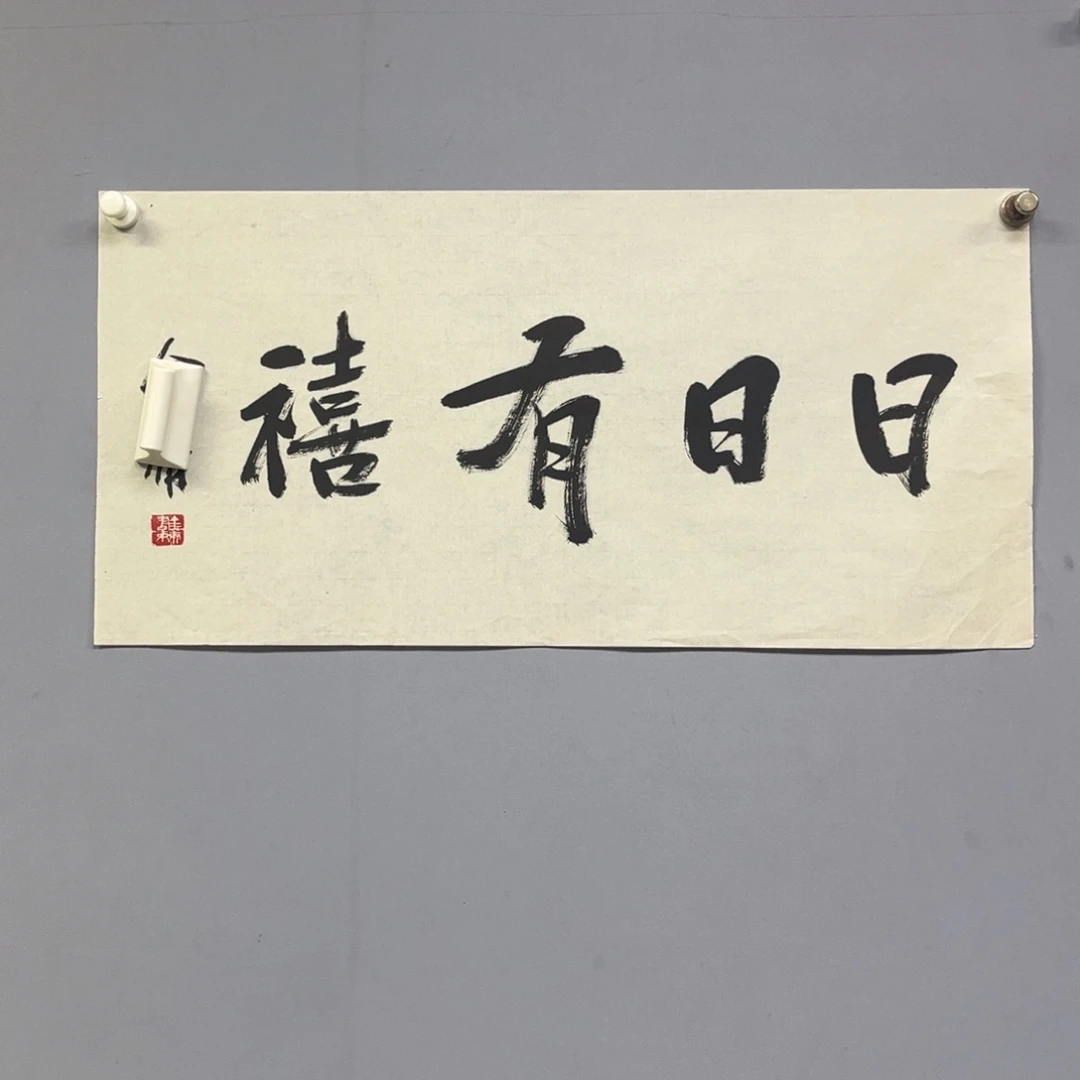 日日有禧